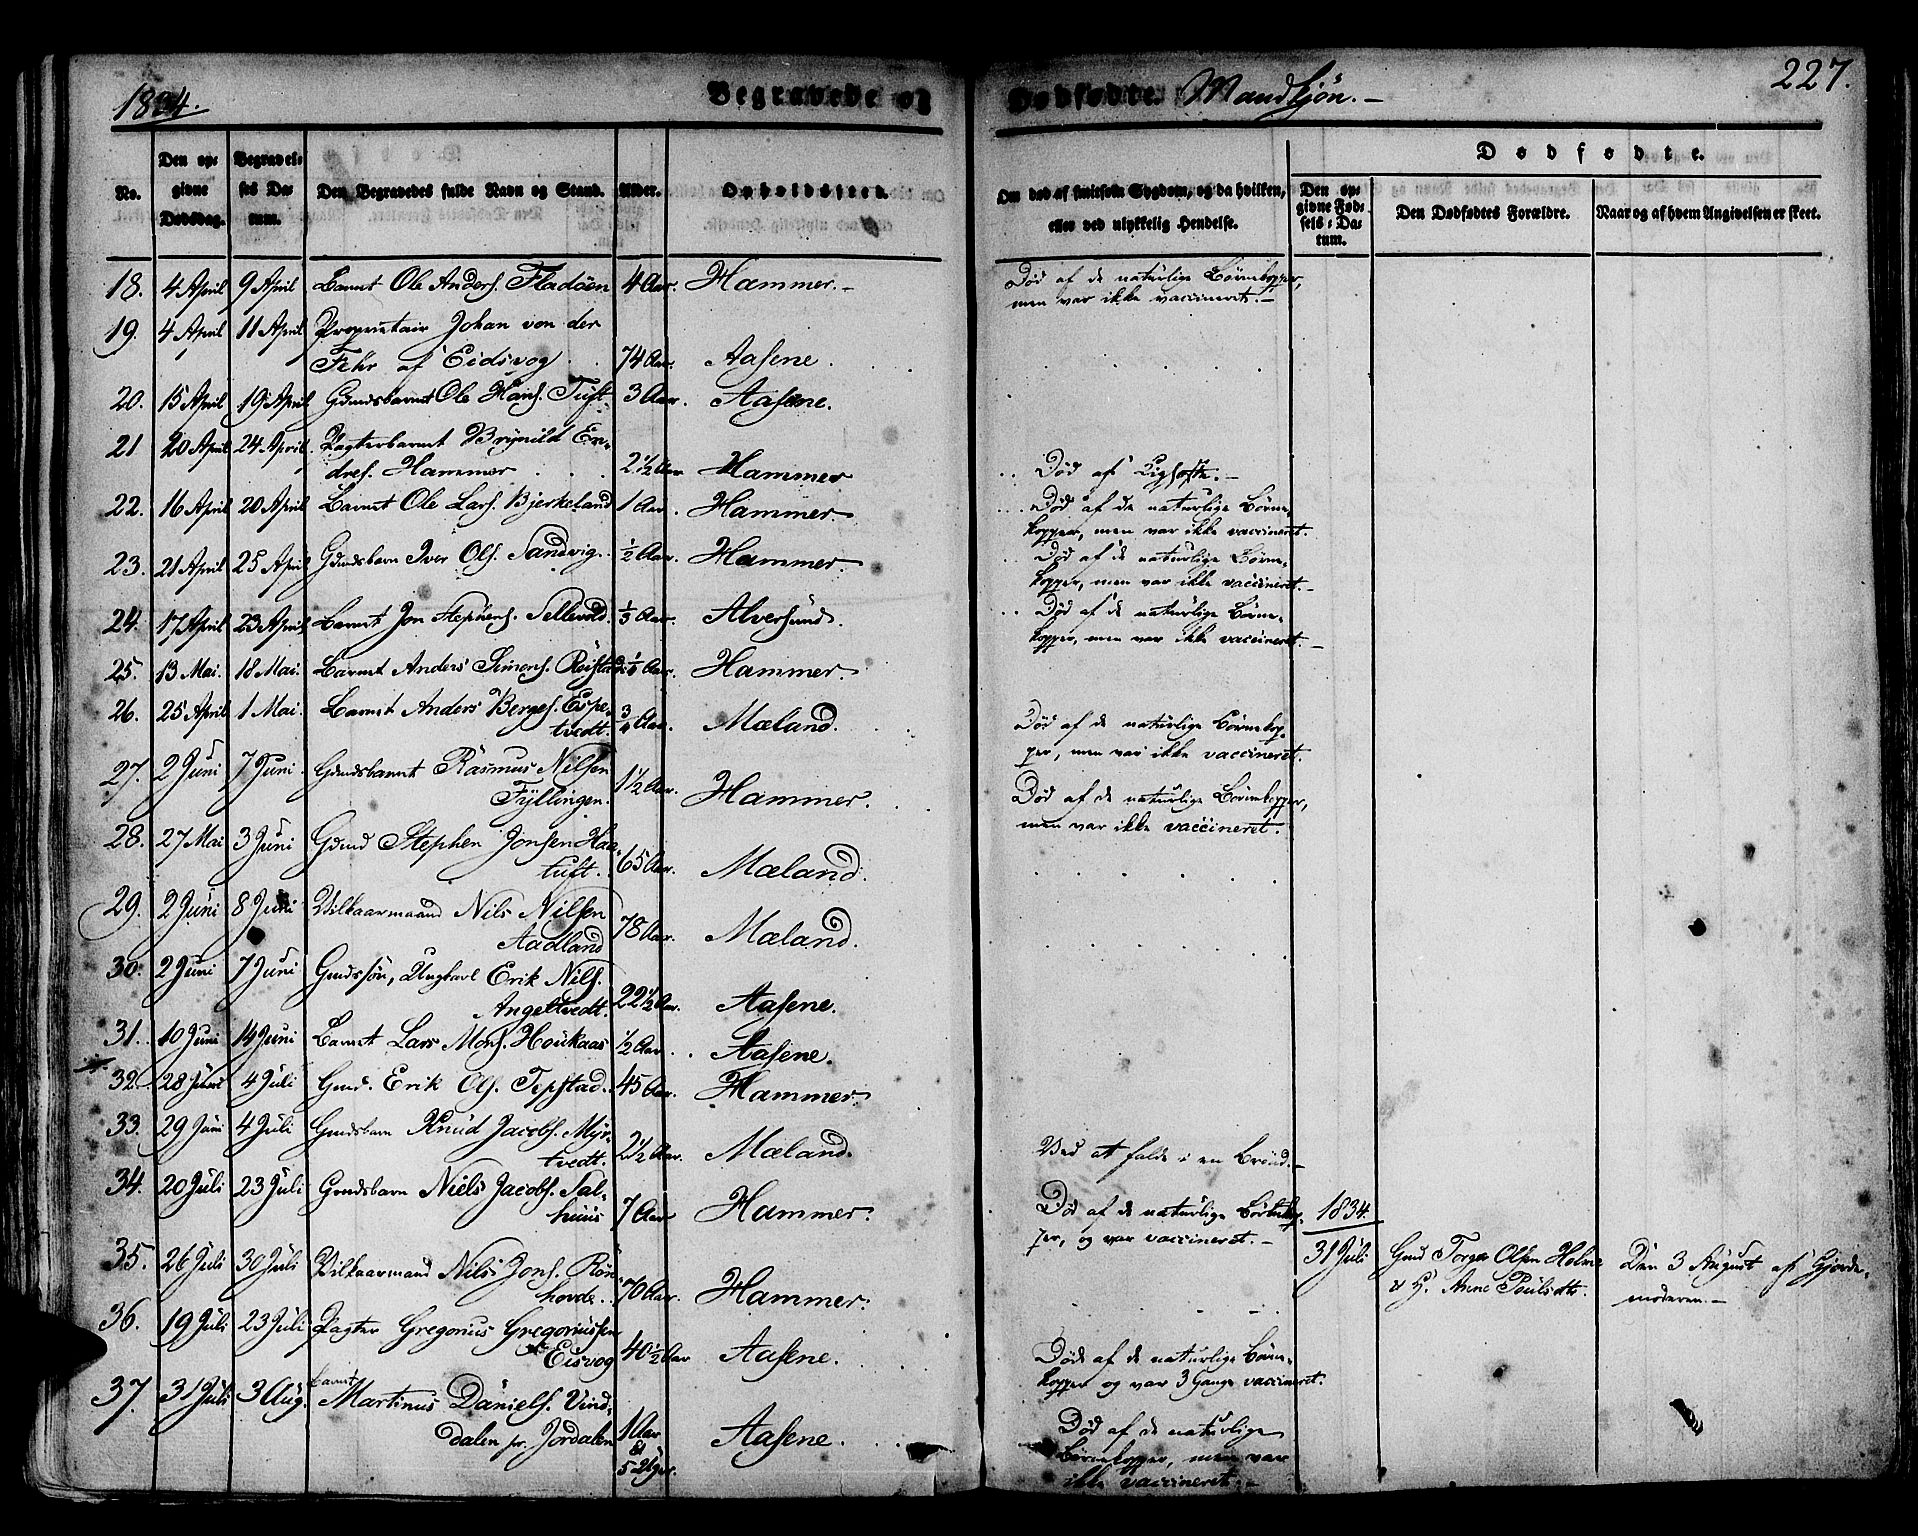 1834.
Begravede og Dødfødte. Mandkjön.
227.
No.
Den opgivne Dødsdag.
Begravelses Datum.
Den Begravedes fulde Navn og Stand.
Alder.
Opholdssted.
Om død af smitsom Sygdom, og da hvilken, eller ved ulykkelig Hendelse.
Dødfødte.
Den opgivne Fødsels-Datum.
Den Dødfødtes Forældre.
Naar og af hvem Angivelsen er skeet.
18. 4 April 9 April Barnet Ole Anders. Fladöen 4 Aar. Hammer. Död af de naturlige Börnekopper,
men var ikke vaccineret.
19. 4 April 11 April Proprietair Johan von der
Fehr af Eidsvog 74 Aar. Aasene.
20. 15 April 19 April Gdmdsbarnet Ole Hans. Tuft. 3 Aar. Aasene.
21 20 April 24 April Pagterbarnet Brynild En-
dres. Hammer 2½ Aar Hammer Död af Kighoste.
22. 16 April 20 April Barnet Ole Lars. Bjerkeland 1 Aar. Hammer. Död af de naturlige Börne-
kopper, men var ikke vaccineret.
23. 21 April 25 April Gdmdsbarn Iver Ols. Sandvig. ½ Aar. Hammer. Död af de naturlige Börne-
kopper, men var ikke vaccineret.
24. 17 April 23 April Barnet Jon Stephens. Sellevold. ⅓ Aar. Alversund. Död af de naturlige Börne-
kopper, men var ikke vaccineret.
25. 13 Mai. 18 Mai. Barnet Anders Simons. Röistad ¼ Aar. Hammer.
26. 25 April 1 Mai. Barnet Anders Berges. Espe-
tvedt. ¾ Aar. Mæland. Död af de naturlige Börnekop-
per, men var ikke vaccineret.
27. 2 Juni 7 Juni Gdmdsbarnet Rasmus Nilsen
Fyllingen. 1½ Aar. Hammer. Död af de naturlige Börnekopper,
men var ikke vaccineret.
28. 27 Mai 3 Juni Gdmd Stephen Jonsen Haa-
tuft. 65 Aar. Mæland.
29. 2 Juni 8 Juni Vilkaarmaand Nils Nilsen
Aadland 78 Aar. Mæland.
30. 2 Juni 7 Juni Gmdssön, Ungkarl Erik Nils.
Angeltvedt. 22½ Aar. Aasene.
31. 10 Juni 14 Juni Barnet Lars Mons. Houkaas ½ Aar. Aasene.
32. 28 Juni 4 Juli Gmd. Erik Ols. Tepstad. 45 Aar. Hammer.
33. 29 Juni 4 Juli Gmdsbarn Knud Jacobs. Myr-
tvedt. 2½ Aar. Mæland. Ved at falde i en Brönd.
34. 20 Juli 23 Juli Gmdsbarn Niels Jacobs. Sal-
huus 7 Aar Hammer. Död af de naturlige Börnekop-
per, og var vaccineret.
1834.
31 Juli Gmd Torger Olsen Holme
& H. Anne Poulsdtr. Den 3 August af Gjorde-
moderen.
35. 26 Juli 30 Juli Vilkaarmand Nils Jons. Rön-
hovde. 70 Aar. Hammer.
36. 19 Juli 23 Juli Pagter Gregorius Gregoriussen
Eisvog 40½ Aar Aasene. Död af de naturlige Börne-
kopper og var 3 Gange vaccineret.
37. 31 Juli 3 Aug. Barnet Martinus Daniels. Vind-
dalen pr. Jordalen 1 Aar
&
5 Uger. Aasene. Död af de naturlige
Börnekopper, men var
ikke vaccineret.